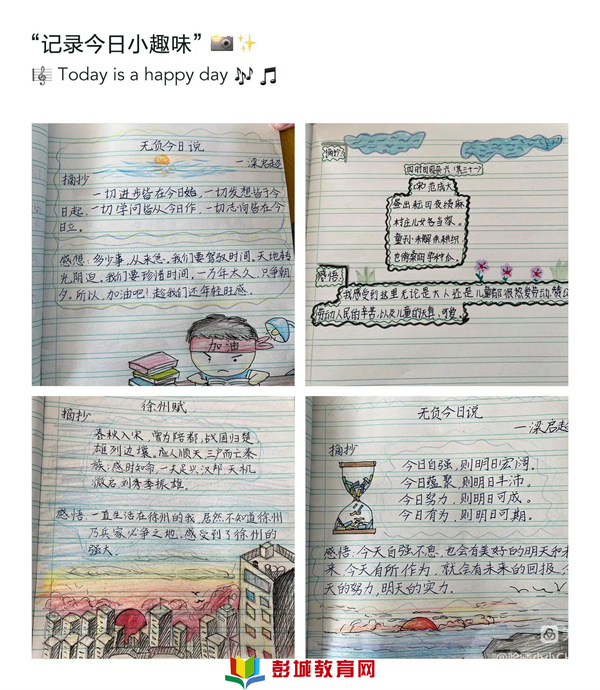 “记录今日小趣味”
Today is a happy day
无负今日说
—梁启超
摘抄
一切进步皆在今日始，一切发想皆于今
日起，一切学问皆从今日作，一切志向皆在今
日立。
感想：多少事，从来急。我们要驾驭时间。天地转
光阴迫。我们要珍惜时间。一万年太久，只争朝
夕。所以，加油吧！趁我们还年轻旺盛。
加油
摘抄
四时田园杂兴（其三十一）
(宋)范成大
昼出耘田夜绩麻
村庄儿女各当家。
童孙未解供耕织
也傍桑阴学种瓜。
感悟：
我感受到这里无论是大人还是儿童都很热爱劳动，赞
劳动人民的辛苦，以及儿童的天真、可爱
徐州赋
摘抄
春秋入宋，曾为陪都，战国归楚
雄列边壤。应人顺天，三户而亡秦
族；感时知命，一夫足兴汉邦。天机
微启，刘季奋振雄。
感悟：一直生活在徐州的我，居然不知道徐州
乃兵家必争之地，感受到了徐州的
强大。
无负今日说
—梁启超
摘抄
今日自强，则明日宏阔。
今日蕴聚，则明日丰沛。
今日努力，则明日可成。
今日有为，则明日可期。
感悟：今天自强不息，也会有美好的明天和未
来，今天有所作为，就会有未来的回报，今
天的努力，明天的实力.
彭城教育网